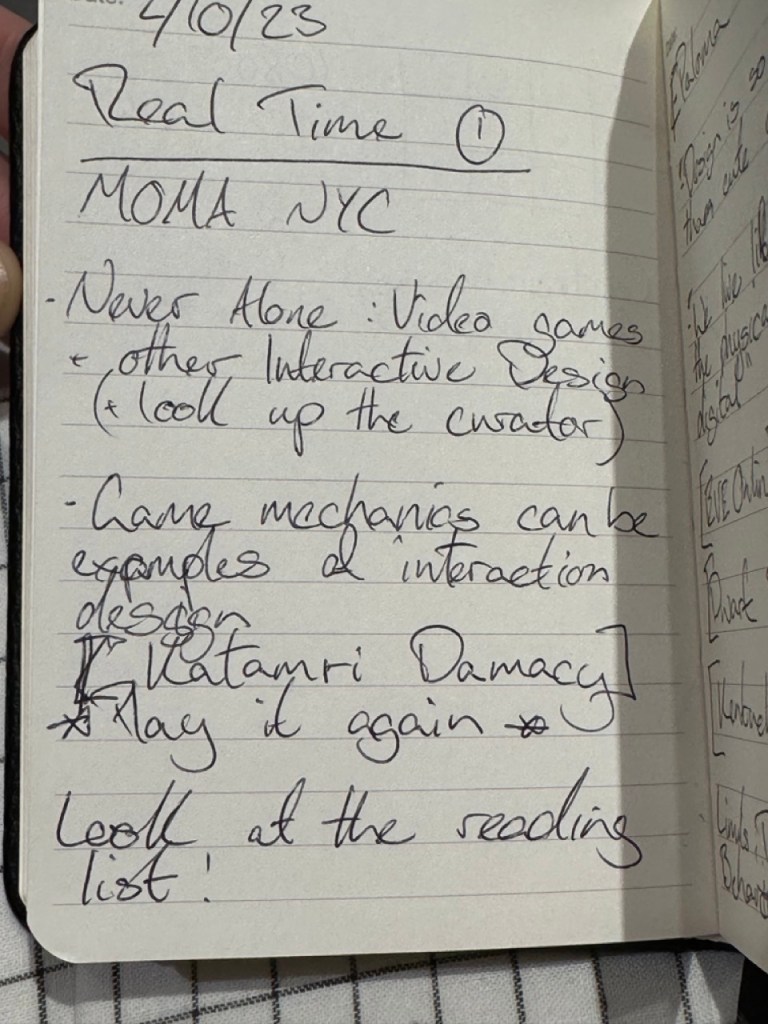 Date:
4/10/23
Real Time ①
MOMA NYC
- Never Alone : Video games
+ other Interactive Design
(+ look up the curator)
- Game mechanics can be
examples of interaction
design
[Katamri Damacy]
* Play it again *
Look at the reading
list!
[Paloma
"Design is so
them cute
the physica
digital"
[EVE Onlin
[Dwarf